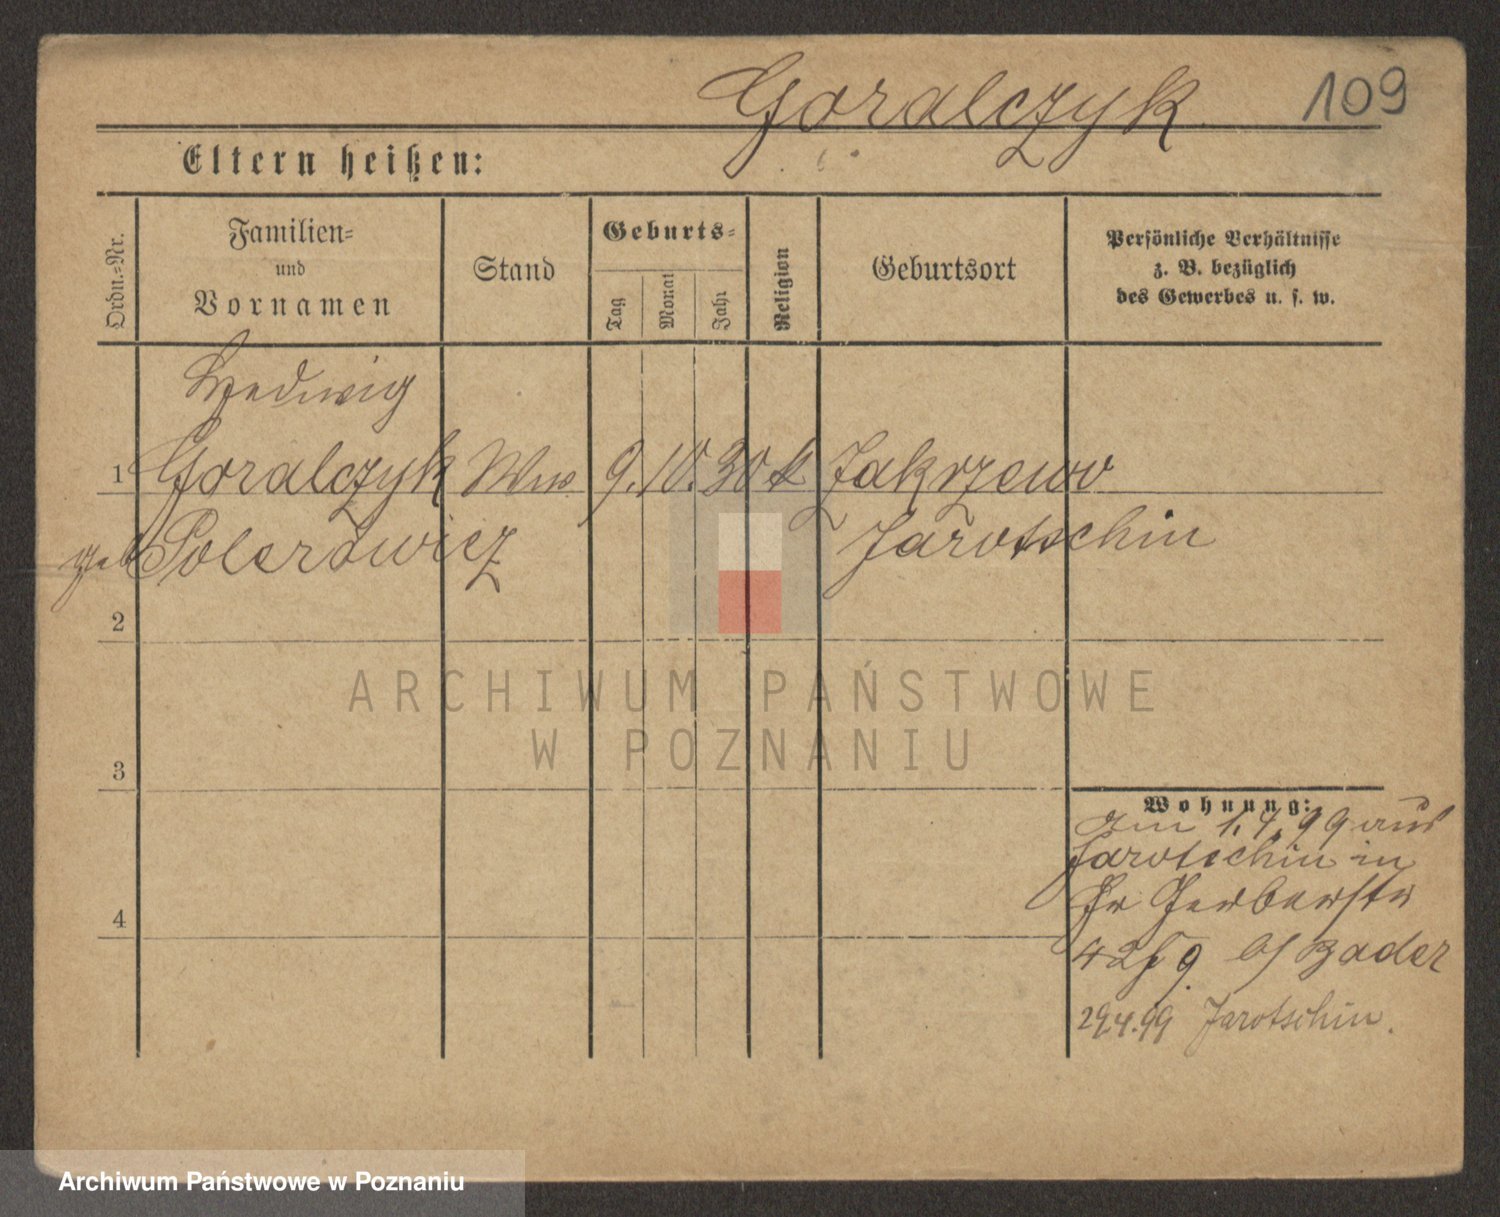 Goralczyk 109
Eltern heißen:
Ordn.=Nr.
Familien=
und
Vornamen
Stand
Geburts=
Tag
Monat
Jahr
Religion
Geburtsort
Persönliche Verhältnisse
z. B. bezüglich
des Gewerbes u. s. w.
Hedwig
1 Goralczyk Ww 9. 10. 30 k Zakrzewo
geb Polerowicz Jarotschin
2
ARCHIWUM PAŃSTWOWE
W POZNANIU
3
Wohnung:
am 1.4.99 aus
Jarotschin in
Gr Gerberstr
42 9 Bader
4
29.4.99 Jarotschin.
Archiwum Państwowe w Poznaniu